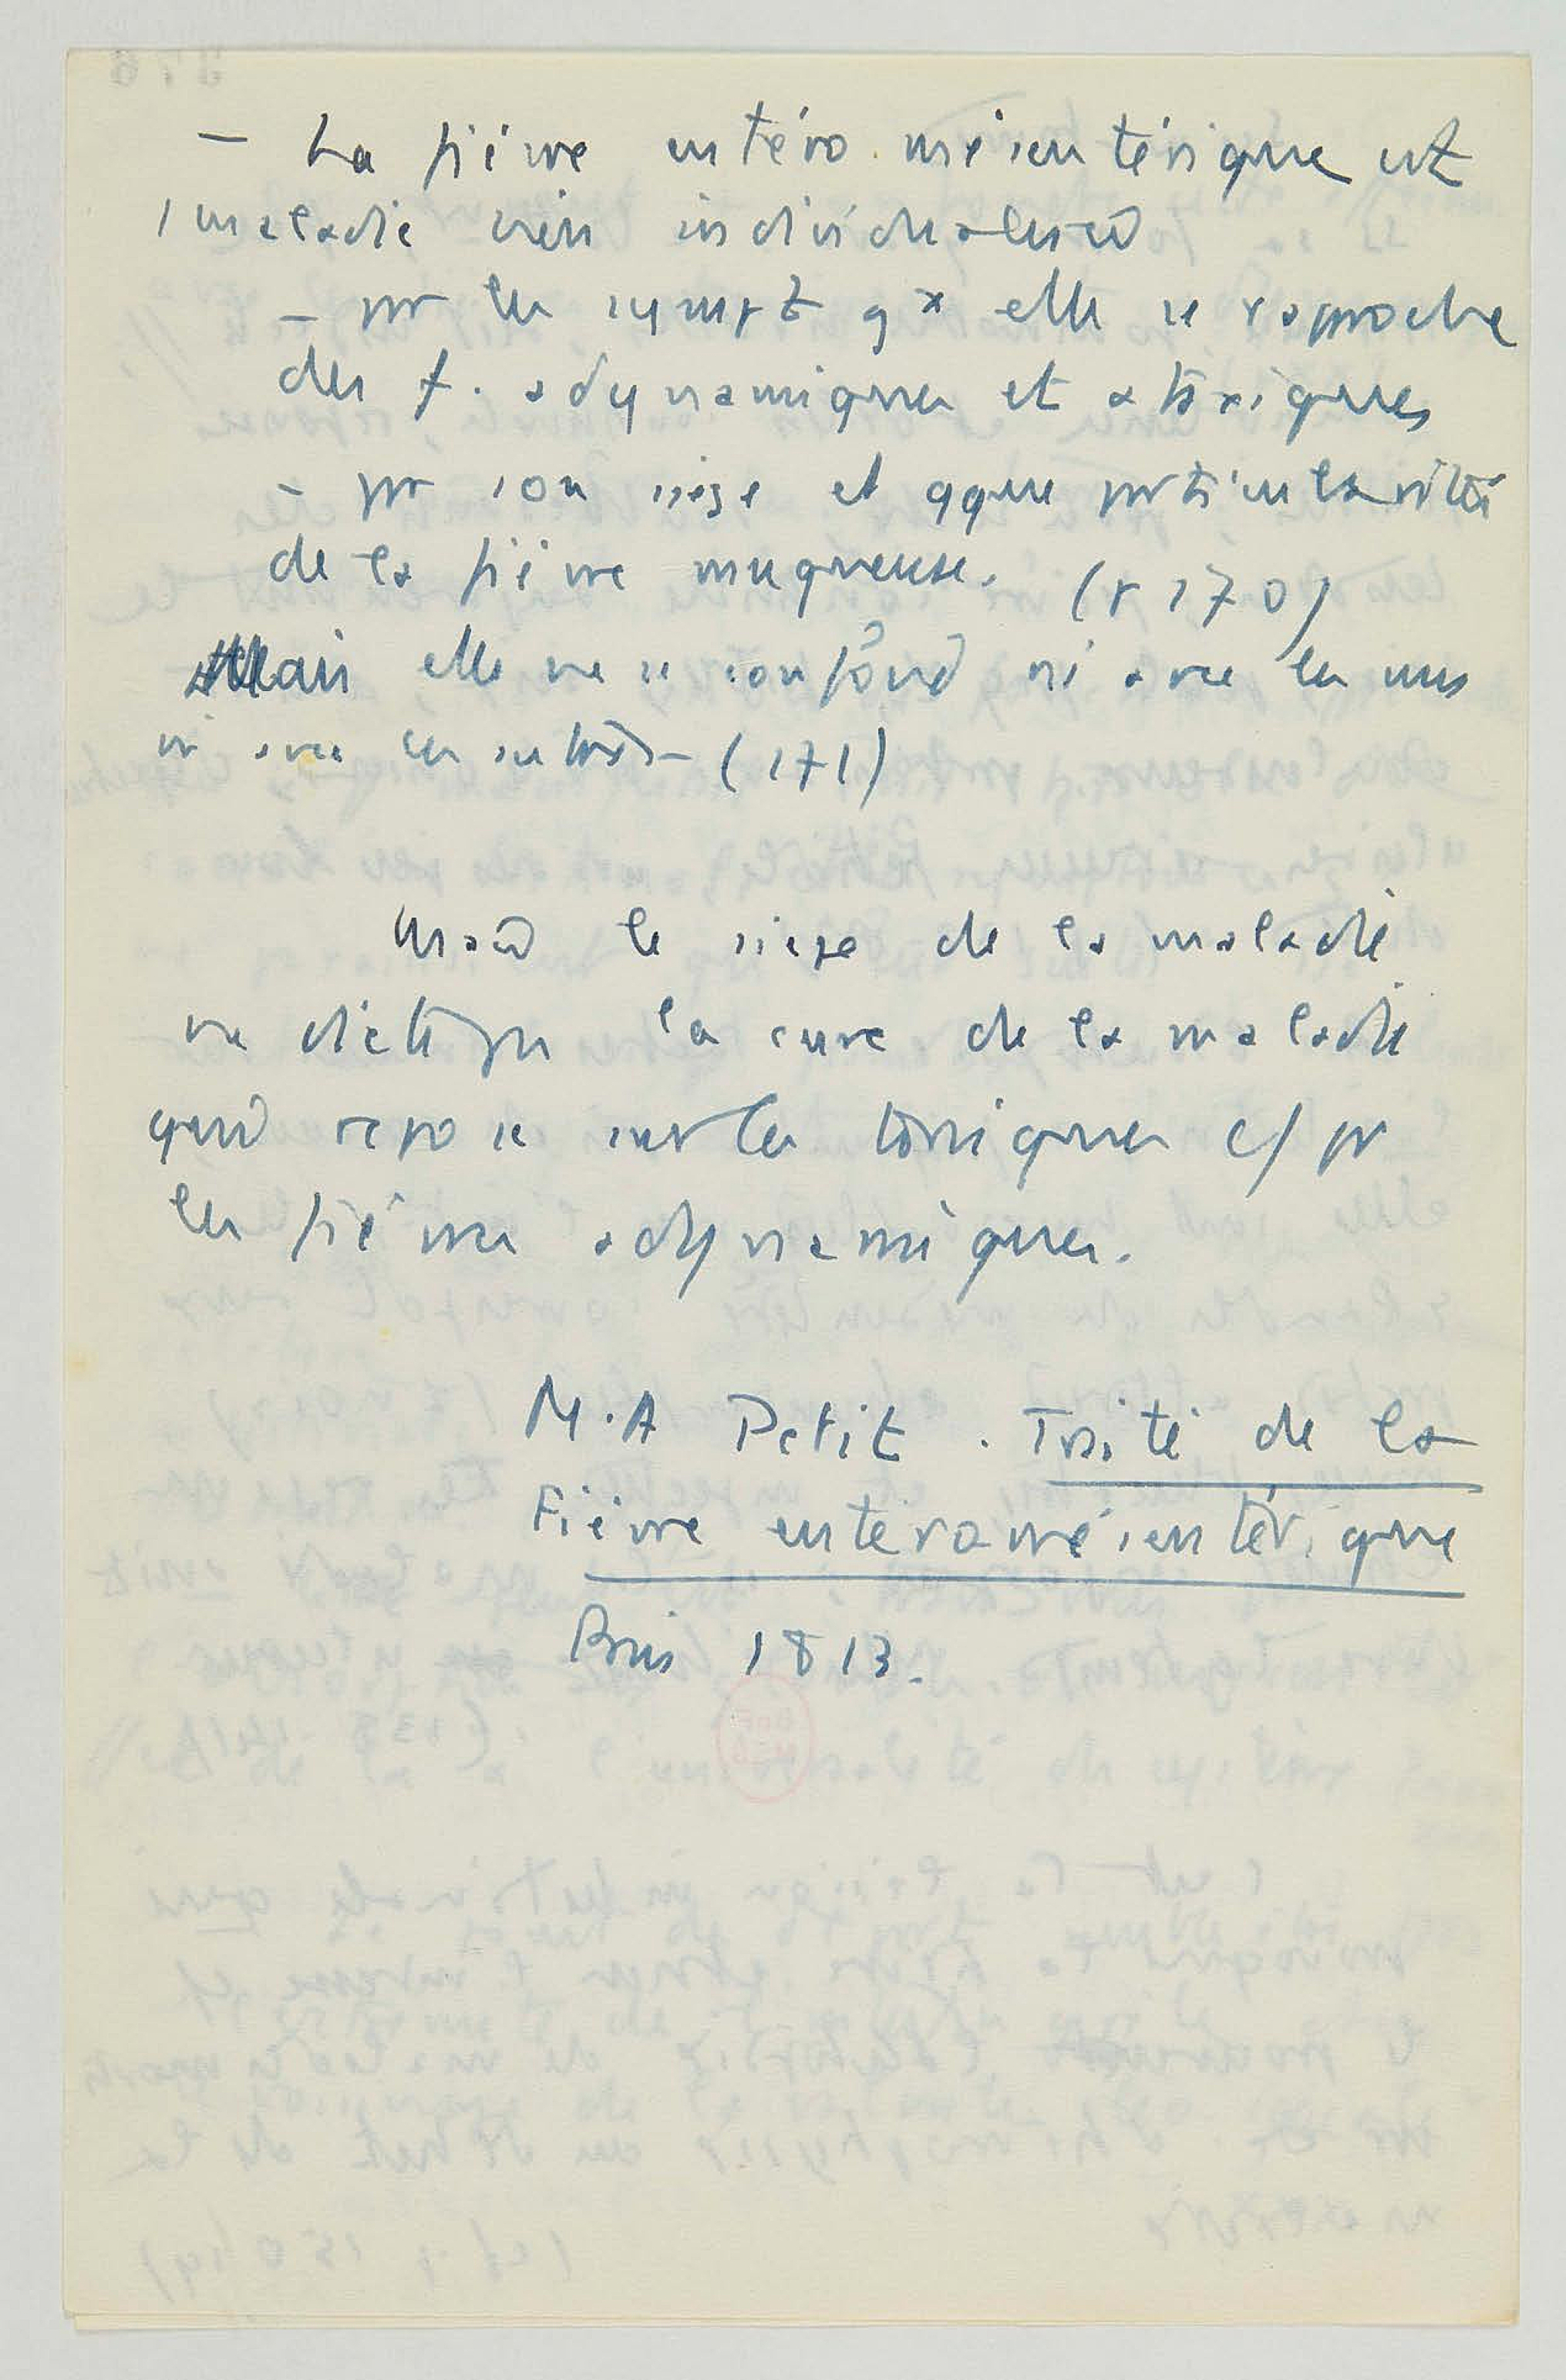 – La fièvre entéro-mésentérique est
1 maladie bien individualisée
– pr les sympt gx elle se rapproche
des f. adynamiques et ataxiques
– pr son siège et qque particularités
de la fièvre muqueuse. (p 170)
Mais elle ne se confond ni avec les unes
ni avec les autres – (171)
le siège de la maladie
ne dicte pas la cure de la maladie
qui repose sur les toniques c/ pr
les fièvres adynamiques.
M.A Petit . Traité de la
Fièvre entéromésentérique
Paris 1813.